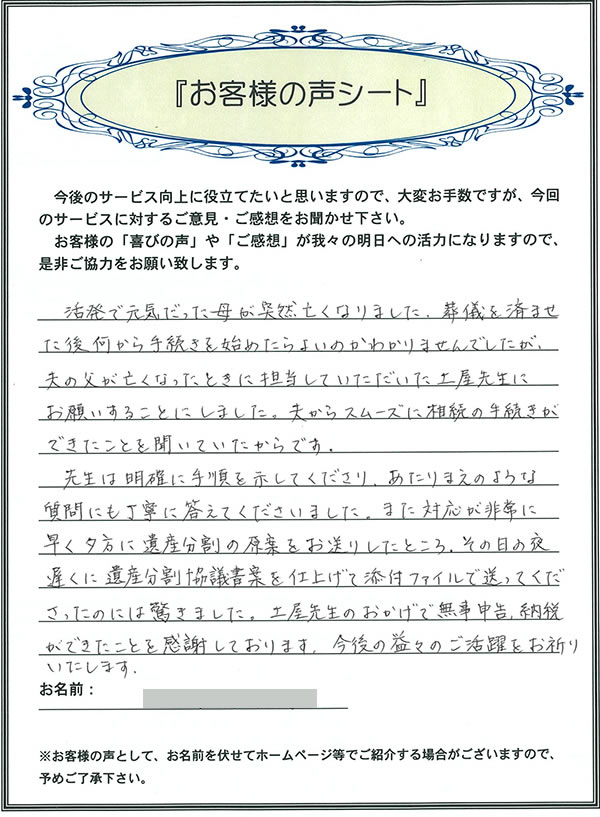 『お客様の声シート』
今後のサービス向上に役立てたいと思いますので、大変お手数ですが、今回
のサービスに対するご意見・ご感想をお聞かせ下さい。
お客様の「喜びの声」や「ご感想」が我々の明日への活力になりますので、
是非ご協力をお願い致します。
活発で元気だった母が突然亡くなりました。葬儀を済ませ
た後何から手続きを始めたらよいのかわかりませんでしたが、
夫の父が亡くなったときに担当していただいた土屋先生に
お願いすることにしました。夫からスムーズに相続の手続きが
できたことを聞いていたからです。
先生は明確に手順を示してくださり、あたりまえのような
質問にも丁寧に答えてくださいました。また対応が非常に
早く夕方に遺産分割の原案をお送りしたところ、その日の夜
遅くに遺産分割協議書案を仕上げて添付ファイルで送ってくだ
さったのには驚きました。土屋先生のおかげで無事申告、納税
ができたことを感謝しております。今後の益々のご活躍をお祈り
いたします。
お名前：
※お客様の声として、お名前を伏せてホームページ等でご紹介する場合がございますので、
予めご了承下さい。